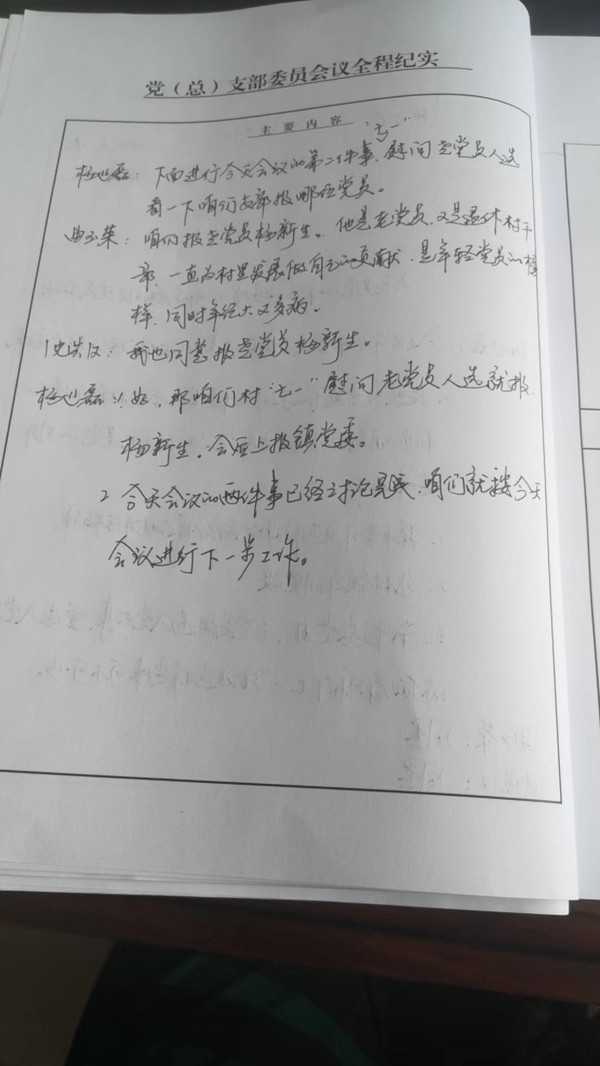 党（总）支部委员会议全程纪实
主 要 内 容
杨世磊：下面进行今天会议的第二件事，"七一"慰问老党员人选
看一下咱们支部报哪位党员。
曲玉荣：咱们报老党员杨新生。他是老党员，又是退休村干
部，一直为村里发展做自己的贡献，是年轻党员的榜
样，同时年纪大又多病。
我也同意报老党员杨新生。
杨世磊：1、好，那咱们村"七一"慰问老党员人选就报
杨新生，会后上报镇党委。
2、今天会议的两件事已经讨论完，咱们就按今天
会议进行下一步工作。